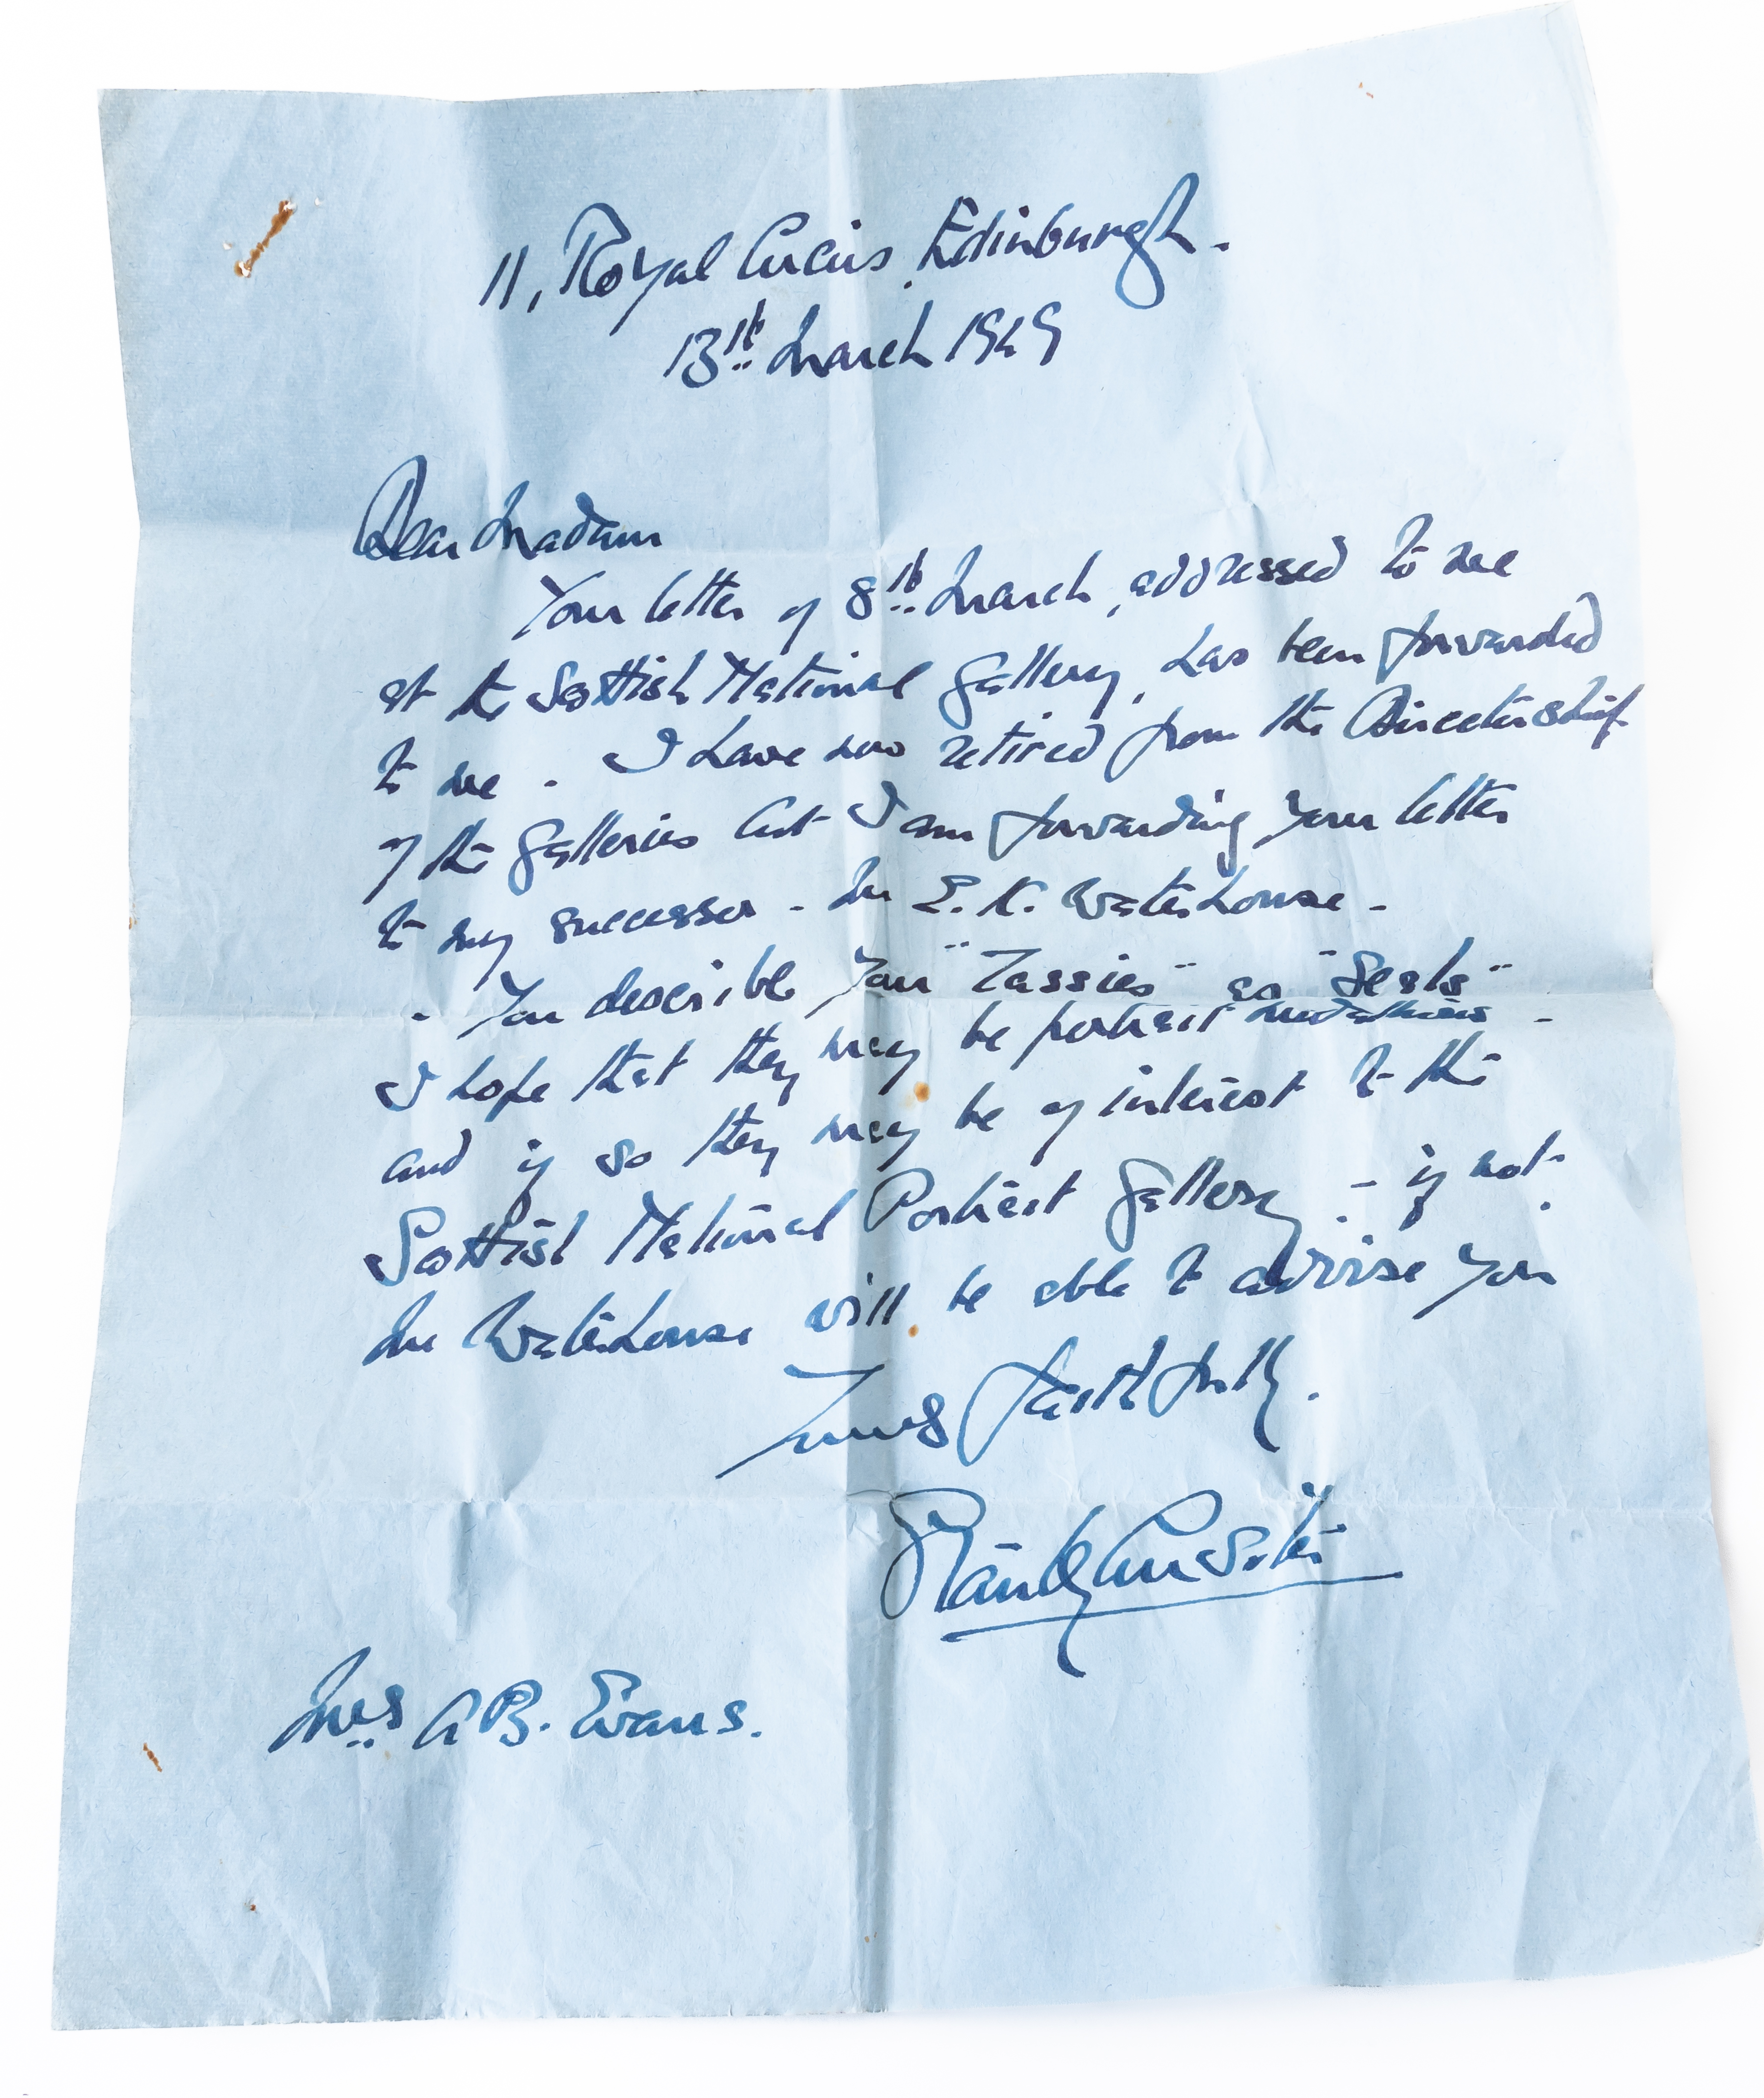 11, Royal Circus, Edinburgh.
13th March 1949
Dear Madam
Your letter of 8th March, addressed to me
at the Scottish National Gallery, has been forwarded
to me - I have now retired from the Directorship
of the Galleries but I am forwarding your letter
to my successor - Mr E. K. Waterhouse -
- You describe your "Tassies" as "Seals"
I hope that they may be portrait medallions -
and if so they may be of interest to the
Scottish National Portrait Gallery - if not.
Mr Waterhouse will be able to advise you
Yours faithfully.
Stanley Cursiter
Mrs A B. Evans.